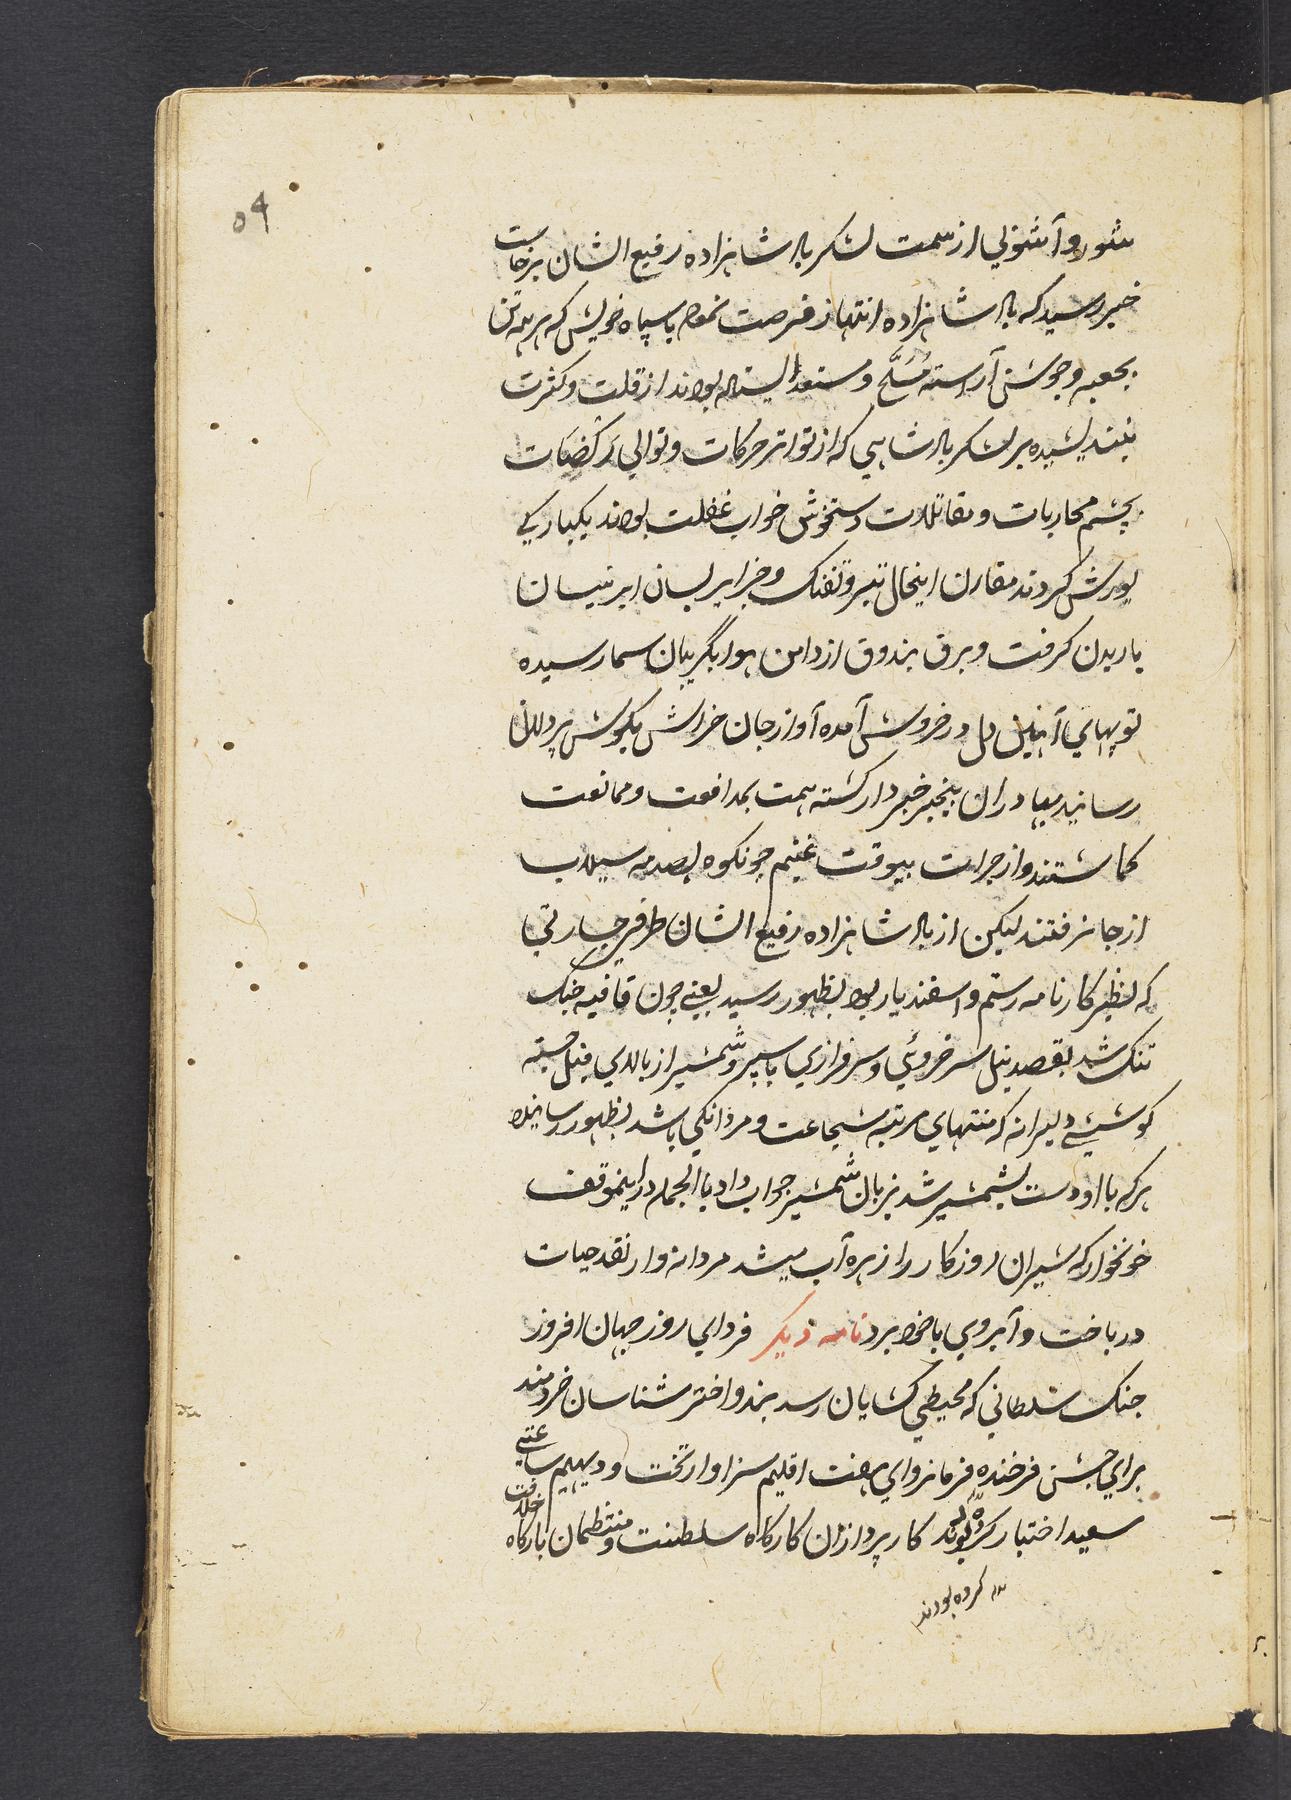 ۵۹
شور و آشوبی از سمت لشکر پادشاهزاده رفیع الشان برخاست
خبر رسید که پادشاهزاده انتهاز فرصت نموده با سپاه خویش که همه تن
بجعبه و جوشن آراسته مسلح و مستعد ایستاده بودند از قلت و کثرت
نیندیشیده بر لشکر پادشاهی که از تواتر حرکات و توالی رکضات
بچشم محاربات و مقاتلات دستخوش خواب غفلت بودند یکبارکی
یورش کردند مقارن اینحال تیر و تفنک و جزایر بسان ابر نیسان
باریدن کرفت و برق بندوق از دامن هوا بگریبان سما رسیده
توپهای آهنین دل در خروش آمده آواز جان خراش بگوش پردلان
رسانید بهادران بیخبر خبردار کشته همت بمدافعت و ممانعت
کماشتند و از جرات بیوقت غنیم چون کوه بصدمه سیلاب
از جا نرفتند لیکن از پادشاهزاده رفیع الشان طرفه جسارتی
که نظیر کارنامه رستم و اسفندیار بود بظهور رسید یعنی چون قافیه جنک
تنک شد بقصد نیل سرخروئی و سرفرازی با سپر و شمشیر از بالای فیل جسته
کوششی دلیرانه که منتهای مرتبه شجاعت و مردانکی باشد بظهور رسانید
هر که با او دست بشمشیر شد بزبان شمشیر جواب داد بالجمله در اینموقف
خونخوار که شیران روزکار را زهره آب میشد مردانه وار نقد حیات
در باخت و آبروی با خود برد نامه دیکر فردای روز جهان افروز
جنک سلطانی که محیطی کشایان رسد بند و اختر شناسان خردمند
برای جشن فرخنده فرمانروای هفت اقلیم سزاوار تخت و دیهیم ساعتی
سعید اختیار کرده بودند کارپردازان کارکاه سلطنت و منتظمان بارکاه خلافت
کرده بودند